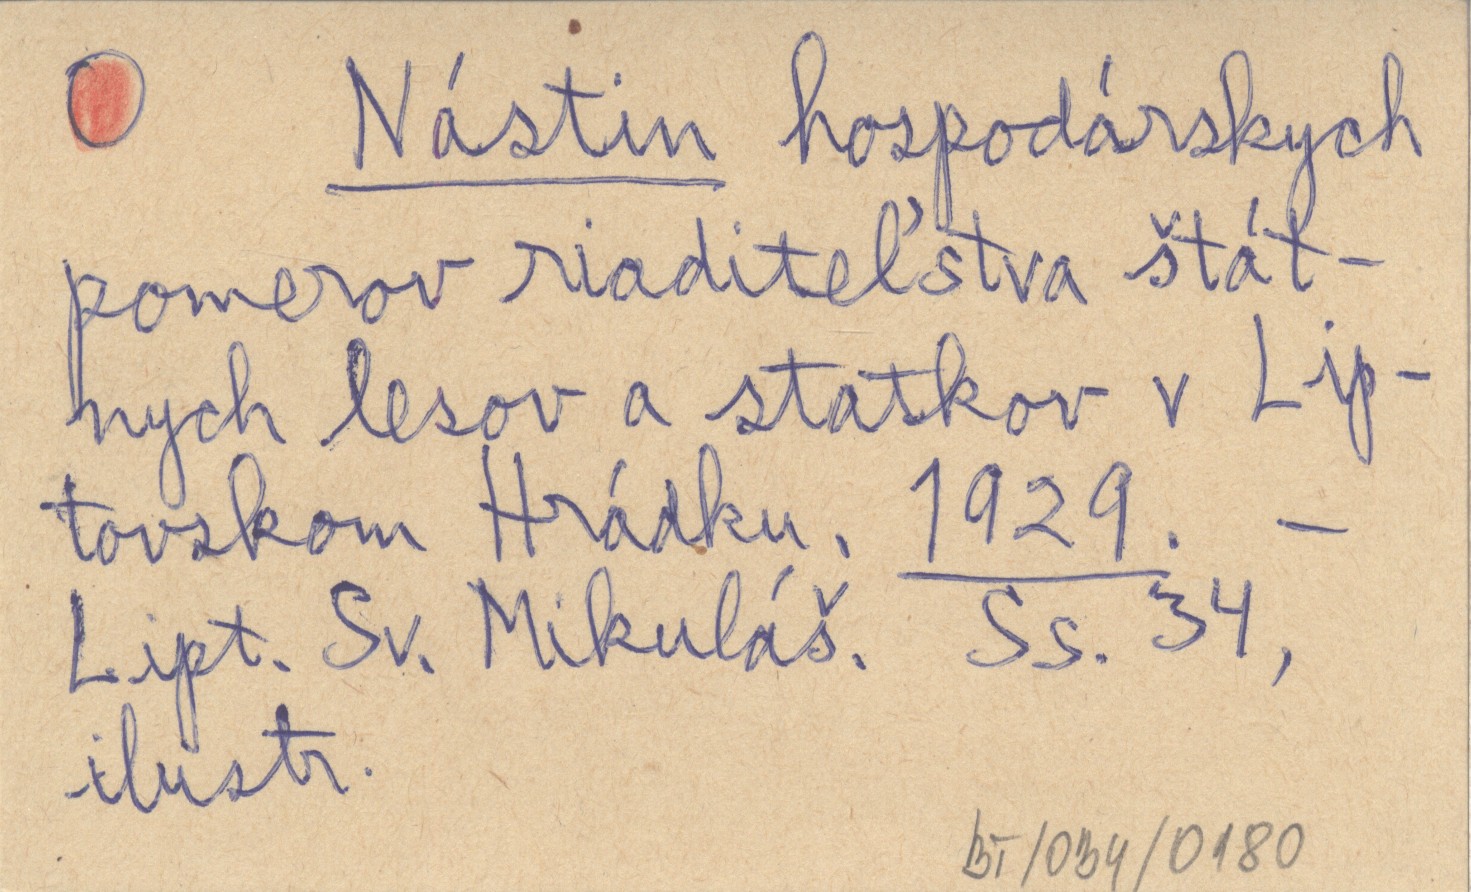 Nástin hospodárskych
pomerov riaditeľstva štát-
nych lesov a statkov v Lip-
tovskom Hrádku. 1929. —
Lipt. Sv. Mikuláš. Ss. 34,
ilustr.
BI/034/0180